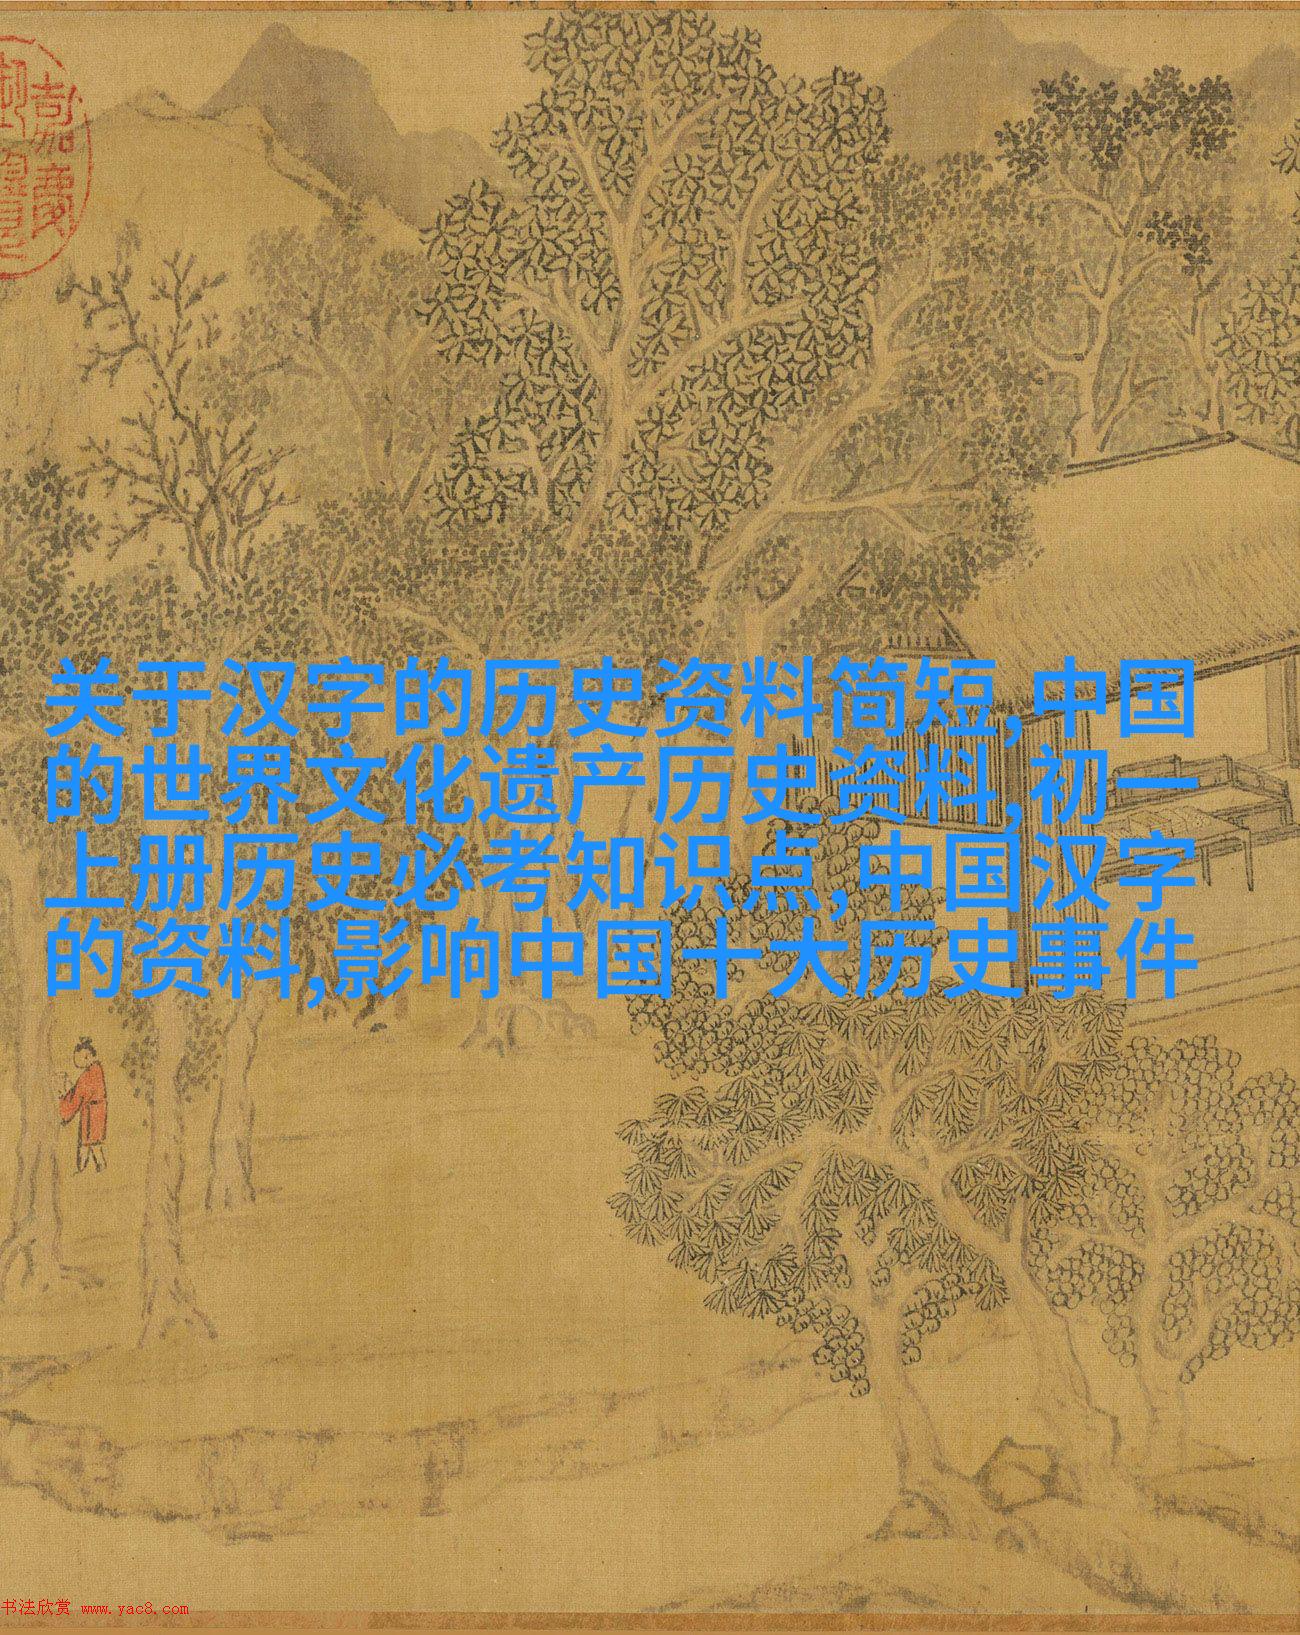 嘉慶
御覽之寶
关于汉字的历史资料简短,中国
的世界文化遗产历史资料,初一
上册历史必考知识点,中国汉字
的资料,影响中国十大历史事件
书法欣赏 www.yac8.com